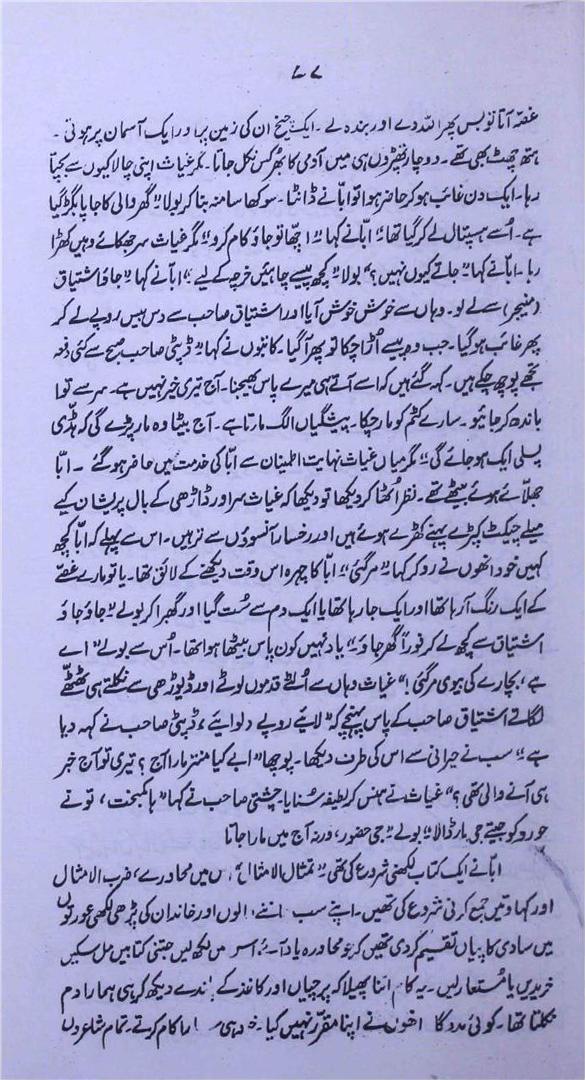 ۷۷
غصّہ آتا تو بس پھر اللہ دے اور بندہ لے ۔ ایک چیخ ان کی زمین پر اور ایک آسمان پر ہوتی ۔
ہتھ چھٹ بھی تھے ۔ دو چار تھپڑوں ہی میں آدمی کا بھرکس نکل جاتا ۔ مگر غیاث اپنی چالاکیوں سے بچتا
رہا ۔ ایک دن غائب ہو کر حاضر ہوا تو ابّا نے ڈانٹا ۔ سوکھا سا منہ بنا کر بولا " گھر والی کا جاپا بگڑ گیا
ہے ۔ اُسے ہسپتال لے کر گیا تھا " ابّا نے کہا " اچھا تو جاؤ کام کرو " مگر غیاث سر جھکائے وہیں کھڑا
رہا ۔ ابّا نے کہا " جاتے کیوں نہیں ؟ " بولا " کچھ پیسے چاہئیں خرچہ کے لیے " ابّا نے کہا " جاؤ اشتیاق
(منیجر) سے لے لو ۔ وہاں سے خوش خوش آیا اور اشتیاق صاحب سے دس بیس روپے لے کر
پھر غائب ہو گیا ۔ جب وہ پیسے اُڑا چکا تو پھر آ گیا ۔ کاتبوں نے کہا " ڈپٹی صاحب صبح سے کئی دفعہ
تجھے پوچھ چکے ہیں ۔ کہہ گئے ہیں کہ اسے آتے ہی میرے پاس بھیجنا ۔ آج تیری خیر نہیں ہے ۔ سر سے توا
باندھ کر جائیو ۔ سارے کٹم کو مار چکا ۔ پیشگیاں الگ مارتا ہے ۔ آج بیٹا وہ مار پڑے گی کہ ہڈی
پسلی ایک ہو جائے گی " مگر میاں غیاث نہایت اطمینان سے ابّا کی خدمت میں حاضر ہو گئے ۔ ابّا
جھلّائے ہوئے بیٹھے تھے ۔ نظر اُٹھا کر دیکھا تو دیکھا کہ غیاث سر اور ڈاڑھی کے بال پریشان کیے
میلے چیکٹ کپڑے پہنے کھڑے ہوئے ہیں اور رخسار آنسوؤں سے تر ہیں ۔ اس سے پہلے کہ ابّا کچھ
کہیں خود انھوں نے رو کر کہا " مر گئی " ابّا کا چہرہ اس وقت دیکھنے کے لائق تھا ۔ یا تو مارے غصّے
کے ایک رنگ آ رہا تھا اور ایک جا رہا تھا یا ایک دم سے سُت گیا اور گھبرا کر بولے " جاؤ جاؤ
اشتیاق سے کچھ لے کر فوراً گھر جاؤ " یاد نہیں کون پاس بیٹھا ہوا تھا ۔ اُس سے بولے " اے
ہے ، بچارے کی بیوی مر گئی ! " غیاث وہاں سے اُلٹے قدموں لوٹے اور ڈیوڑھی سے نکلتے ہی ٹھٹھے
لگاتے اشتیاق صاحب کے پاس پہنچے کہ " لائیے روپے دلوائیے ، ڈپٹی صاحب نے کہہ دیا
ہے " سب نے حیرانی سے اس کی طرف دیکھا ۔ پوچھا " ابے کیا منتر مارا آج ؟ تیری تو آج خبر
ہی آنے والی تھی ؟ " غیاث نے ہنس کر لطیفہ سُنایا ۔ چشتی صاحب نے کہا " ہا کمبخت ، تو نے
جورو کو جیتے جی مار ڈالا " بولے " جی حضور ، ورنہ آج میں مارا جاتا
ابّا نے ایک کتاب لکھنی شروع کی تھی " تمثال الامثال " ، میں محاورے ، ضرب الامثال
اور کہاوتیں جمع کرنی شروع کی تھیں ۔ اپنے سب والوں اور خاندان کی پڑھی لکھی عورتوں
میں سادی کاپیاں تقسیم کر دی تھیں کہ جو محاورہ یاد آئے اس میں لکھ لیں جتنی کتابیں مل سکیں
خریدیں یا مُستعار لیں ۔ یہ کام اتنا پھیلا کہ پرچیاں اور کاغذ کے دیکھ کر ہی ہمارا دم
نکلتا تھا ۔ کوئی مددگار انھوں نے اپنا مقرّر نہیں کیا ۔ خود ہی کام کرتے ۔ تمام شاعروں